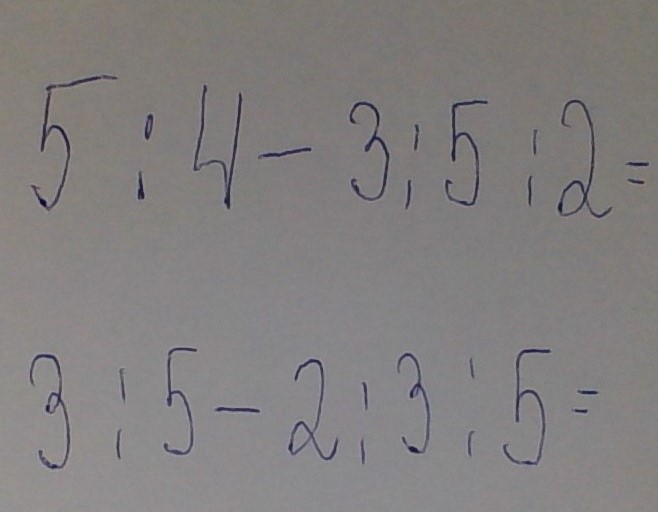 5 : 4 - 3 : 5 : 2 =
3 : 5 - 2 : 3 : 5 =